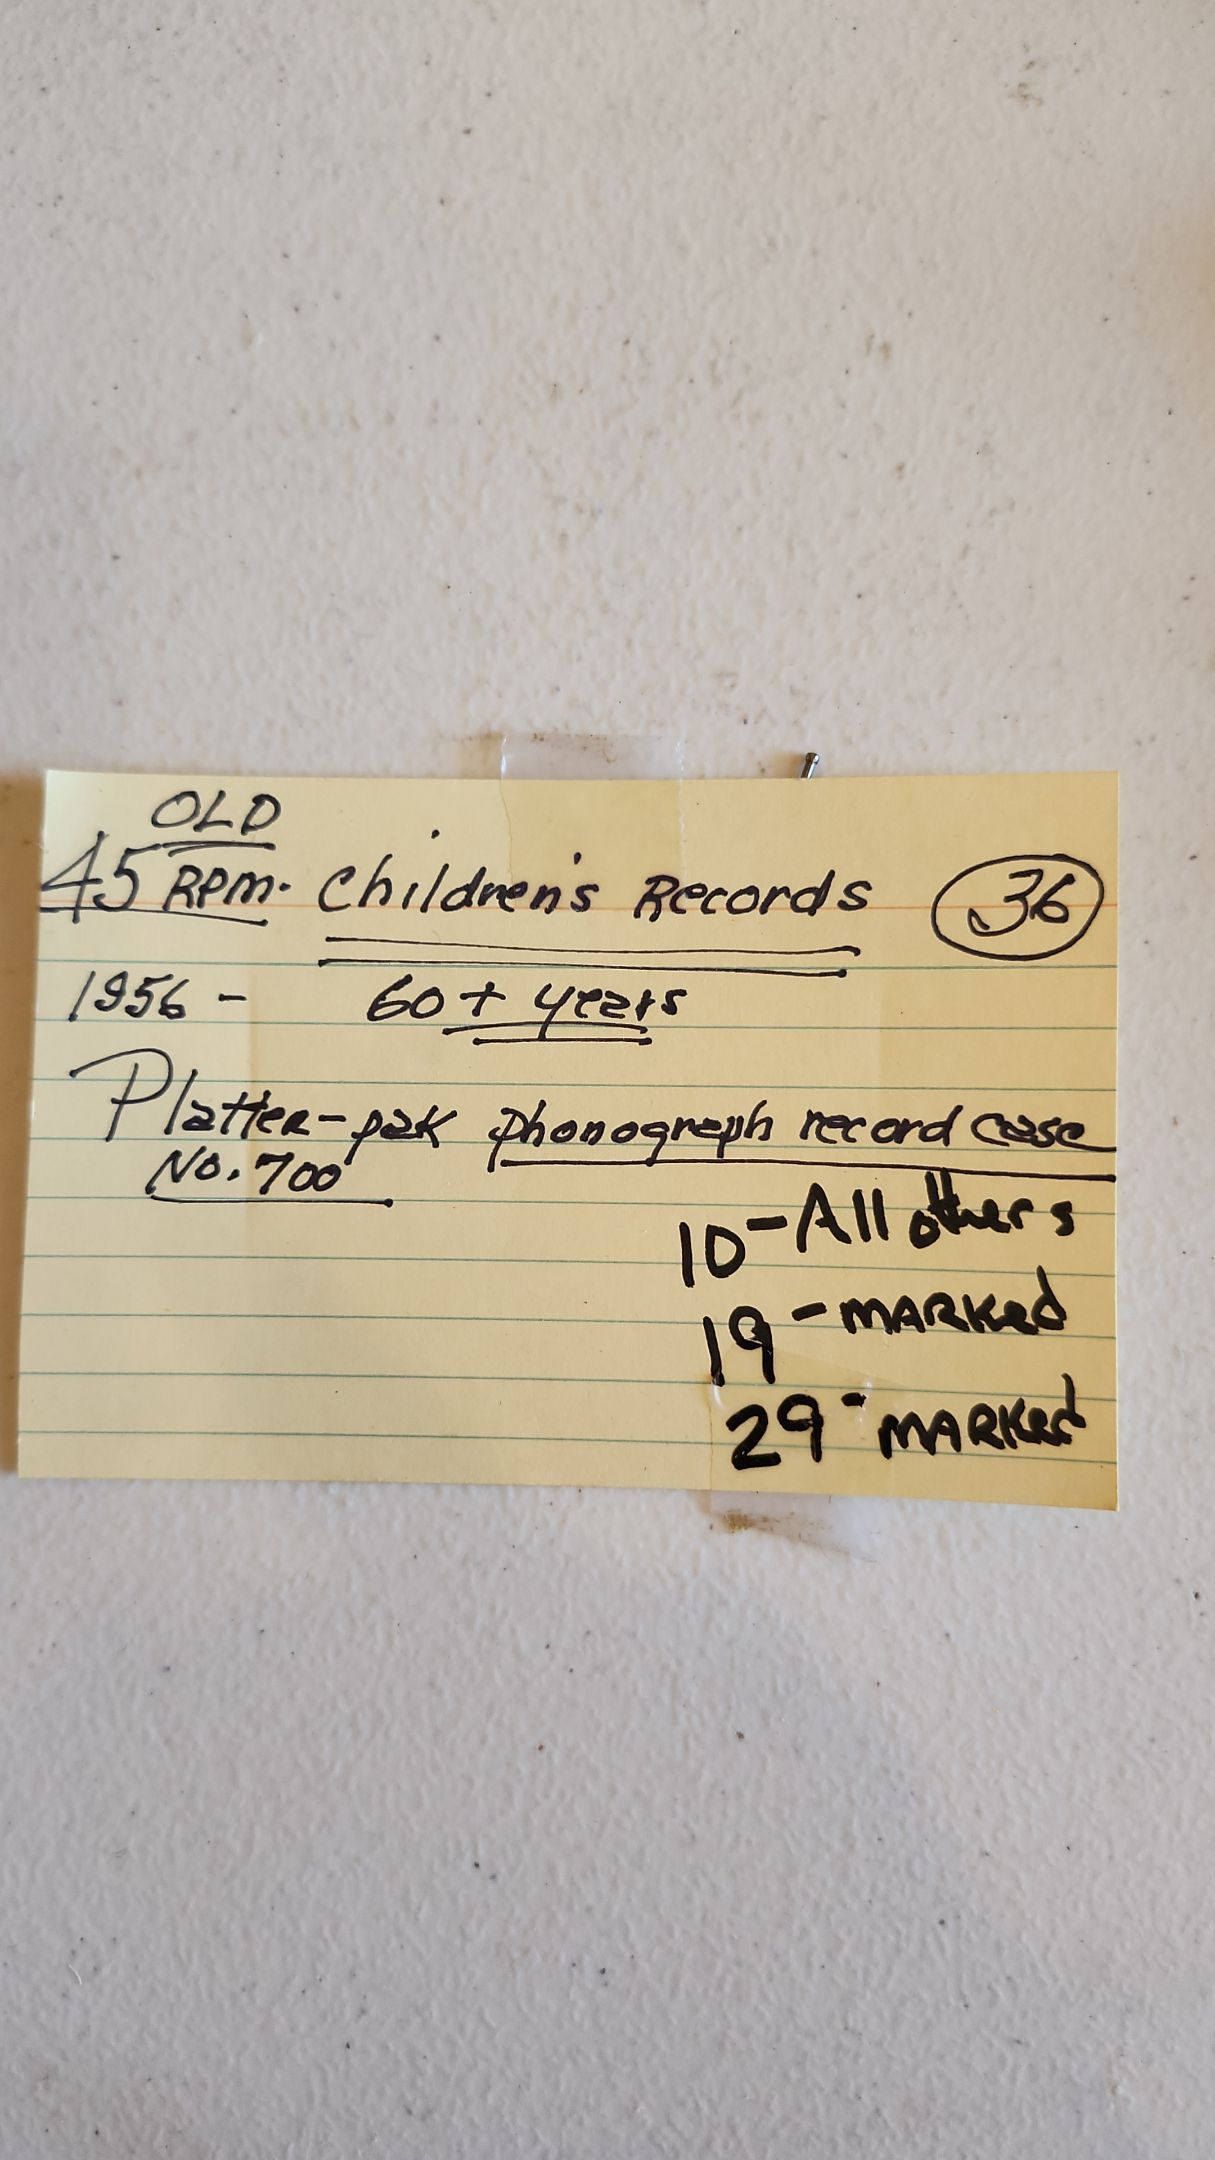 OLD
45 RPM. Children's Records 36
1956 - 60+ years
Platter-pak phonograph record case
No. 700
10 - All others
19 - MARKed
29 - MARKed